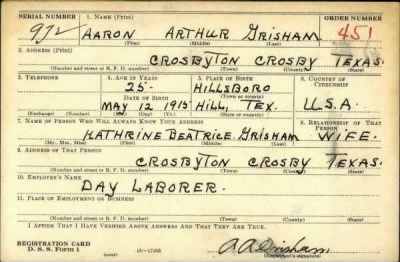 SERIAL NUMBER 1. NAME (Print) ORDER NUMBER
972 AARON ARTHUR GRISHAM 451
(First) (Middle) (Last)
2. ADDRESS (Print)
CROSBYTON CROSBY TEXAS.
(Number and street or R. F. D. number) (Town) (County) (State)
3. TELEPHONE 4. AGE IN YEARS 5. PLACE OF BIRTH 6. COUNTRY OF CITIZENSHIP
25 HILLSBORO
DATE OF BIRTH (Town or county)
MAY 12, 1915 HILL, TEX. U.S.A.
(Exchange) (Number) (Mo.) (Day) (Yr.) (State or country)
7. NAME OF PERSON WHO WILL ALWAYS KNOW YOUR ADDRESS 8. RELATIONSHIP OF THAT PERSON
KATHRINE BEATRICE GRISHAM WIFE.
(Mr., Mrs., Miss) (First) (Middle) (Last)
9. ADDRESS OF THAT PERSON
CROSBYTON CROSBY TEXAS.
(Number and street or R. F. D. number) (Town) (County) (State)
10. EMPLOYER'S NAME
DAY LABORER.
11. PLACE OF EMPLOYMENT OR BUSINESS
(Number and street or R. F. D. number) (Town) (County) (State)
I AFFIRM THAT I HAVE VERIFIED ABOVE ANSWERS AND THAT THEY ARE TRUE.
REGISTRATION CARD
D. S. S. Form 1 (over) 16—17105 A A Grisham
(Registrant's signature)